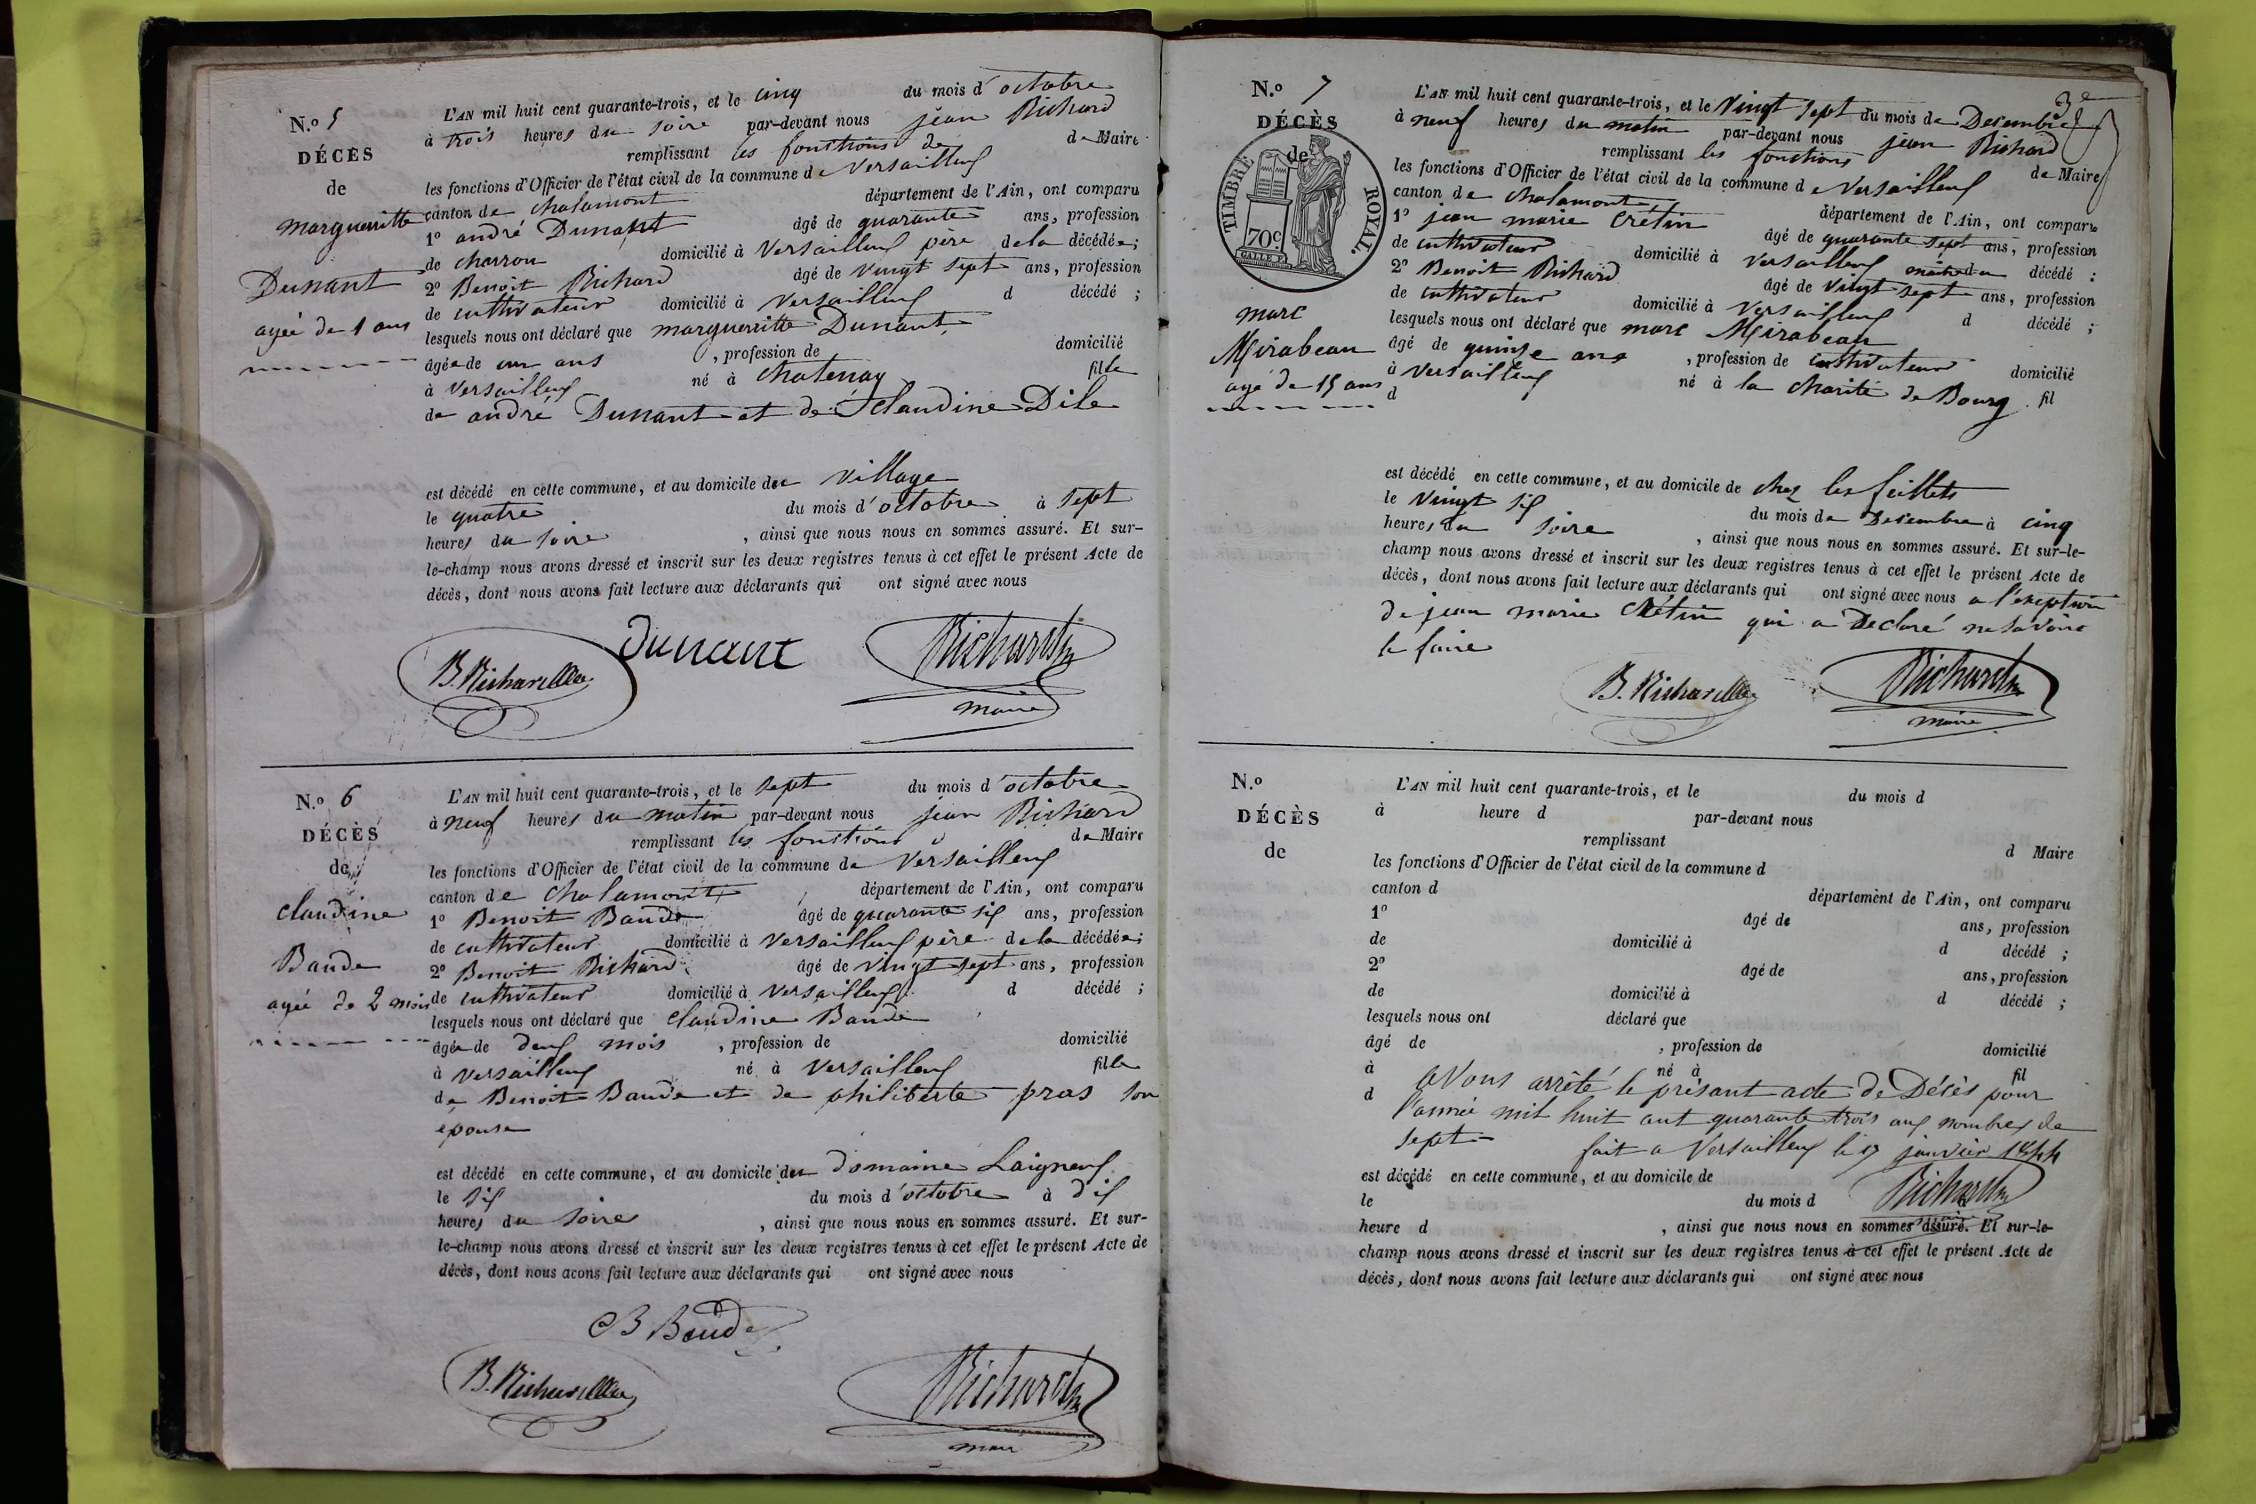 N.º 5
DÉCÈS
de
margueritte
Dunant
agée de 1 ans
L'AN mil huit cent quarante-trois, et le cinq du mois d'octobre
à trois heures du soire par-devant nous jean Richard
remplissant les fonctions de de Maire
les fonctions d'Officier de l'état civil de la commune de Versailleux
canton de chalamont département de l'Ain, ont comparu
1º andré Dunant âgé de quarante ans, profession
de charron domicilié à Versailleux père de la décédée;
2º Benoit Richard âgé de vingt sept ans, profession
de cultivateur domicilié à Versailleux d décédé ;
lesquels nous ont déclaré que margueritte Dunant
âgée de un ans , profession de domicilié
à Versailleux né à chatenay fille
de andré Dunant et de claudine Dile
est décédé en cette commune, et au domicile du village
le quatre du mois d'octobre à sept
heures du soire , ainsi que nous nous en sommes assuré. Et sur-
le-champ nous avons dressé et inscrit sur les deux registres tenus à cet effet le présent Acte de
décès, dont nous avons fait lecture aux déclarants qui ont signé avec nous
Dunant
B. Richard Richard
maire
N.º 6
DÉCÈS
de
claudine
Baude
agée de 2 mois
L'AN mil huit cent quarante-trois, et le sept du mois d'octobre
à neuf heures du matin par-devant nous jean Richard
remplissant les fonctions de Maire
les fonctions d'Officier de l'état civil de la commune de Versailleux
canton de chalamont département de l'Ain, ont comparu
1º Benoit Baude âgé de quarante six ans, profession
de cultivateur domicilié à Versailleux père de la décédée;
2º Benoit Richard âgé de vingt sept ans, profession
de cultivateur domicilié à Versailleux d décédé ;
lesquels nous ont déclaré que claudine Baude
âgée de deux mois , profession de domicilié
à Versailleux né à Versailleux fille
de Benoit Baude et de philiberte pras son
epouse
est décédé en cette commune, et au domicile du domaine Laigneux
le six du mois d'octobre à dix
heures du soire , ainsi que nous nous en sommes assuré. Et sur-
le-champ nous avons dressé et inscrit sur les deux registres tenus à cet effet le présent Acte de
décès, dont nous avons fait lecture aux déclarants qui ont signé avec nous
B Baude
B. Richard Richard
maire
3e
N.º 7
DÉCÈS
de
TIMBRE ROYAL.
70c
marc
Mirabeau
agé de 15 ans
L'AN mil huit cent quarante-trois, et le Vingt sept du mois de Decembre
à neuf heures du matin par-devant nous jean Richard
remplissant les fonctions de Maire
les fonctions d'Officier de l'état civil de la commune de Versailleux
canton de chalamont département de l'Ain, ont comparu
1º jean marie Crétin âgé de quarante sept ans, profession
de cultivateur domicilié à Versailleux maitre du décédé ;
2º Benoit Richard âgé de vingt sept ans, profession
de cultivateur domicilié à Versailleux d décédé ;
lesquels nous ont déclaré que marc Mirabeau
âgé de quinze ans , profession de cultivateur domicilié
à Versailleux né à la charité de Bourg fil
d
est décédé en cette commune, et au domicile de chez les feillets
le vingt six du mois de Decembre à cinq
heures du soire , ainsi que nous nous en sommes assuré. Et sur-le-
champ nous avons dressé et inscrit sur les deux registres tenus à cet effet le présent Acte de
décès, dont nous avons fait lecture aux déclarants qui ont signé avec nous a l'exeption
de jean marie Crétin qui a Declaré ne savoire
le faire
B. Richard Richard
maire
N.º
DÉCÈS
de
L'AN mil huit cent quarante-trois, et le du mois d
à heure d par-devant nous
remplissant d Maire
les fonctions d'Officier de l'état civil de la commune d
canton d département de l'Ain, ont comparu
1º âgé de ans, profession
de domicilié à d décédé ;
2º âgé de ans, profession
de domicilié à d décédé ;
lesquels nous ont déclaré que
âgé de , profession de domicilié
à né à fil
d avons arrêté le présant acte de Décès pour
l'année mil huit cent quarante trois aux nombres de
sept fait a Versailleux le janvier 1844
est décédé en cette commune, et au domicile de
le du mois d Richard
heure d , ainsi que nous nous en sommes assuré. Et sur-le-
champ nous avons dressé et inscrit sur les deux registres tenus à cet effet le présent Acte de
décès, dont nous avons fait lecture aux déclarants qui ont signé avec nous